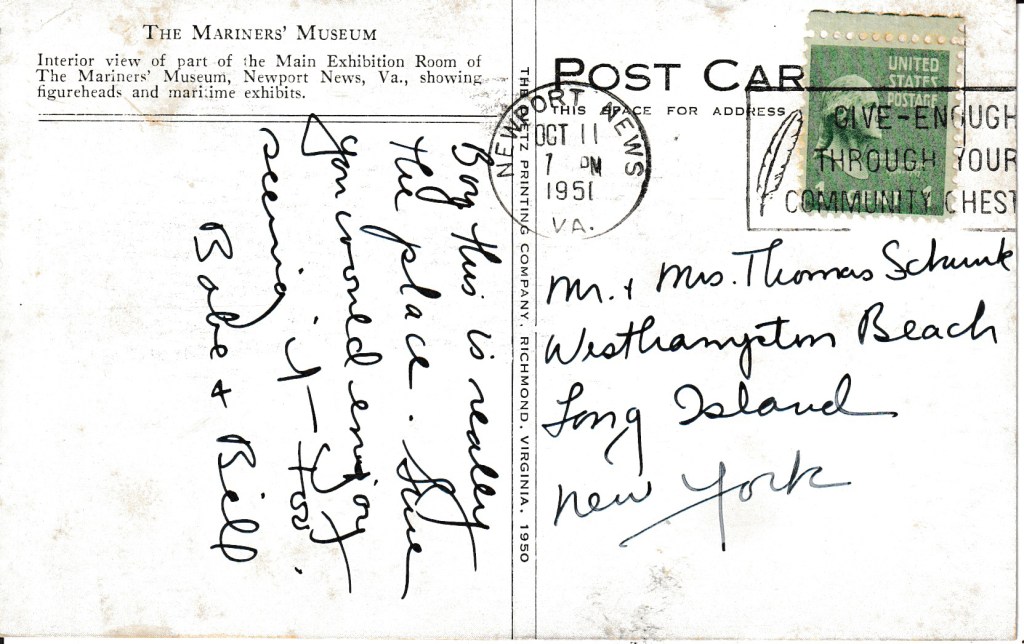 THE MARINERS' MUSEUM
Interior view of part of the Main Exhibition Room of
The Mariners' Museum, Newport News, Va., showing
figureheads and maritime exhibits.
Boy this is really
the place. Sure
you would enjoy
seeing it - Too.
Babe & Bill
THE DIETZ PRINTING COMPANY, RICHMOND, VIRGINIA, 1950
POST CAR
THIS SPACE FOR ADDRESS
NEWPORT NEWS
OCT 11
7 PM
1951
VA.
UNITED
STATES
POSTAGE
1 1
GIVE-ENOUGH
THROUGH YOUR
COMMUNITY CHEST
Mr. + Mrs. Thomas Schunk
Westhampton Beach
Long Island
New York